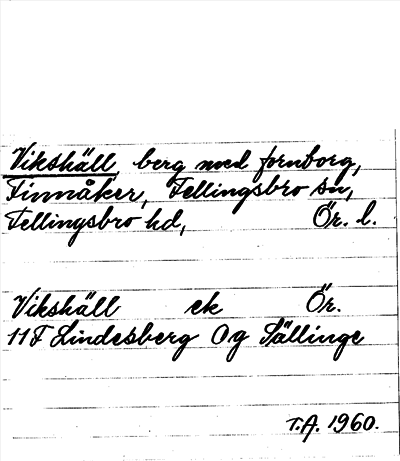 Vikshäll, berg med fornborg,
Finnåker, Fellingsbro sn,
Fellingsbro hd, Ör. l.
Vikshäll ek Ör.
11F Lindesberg Og Sällinge
T.A. 1960.